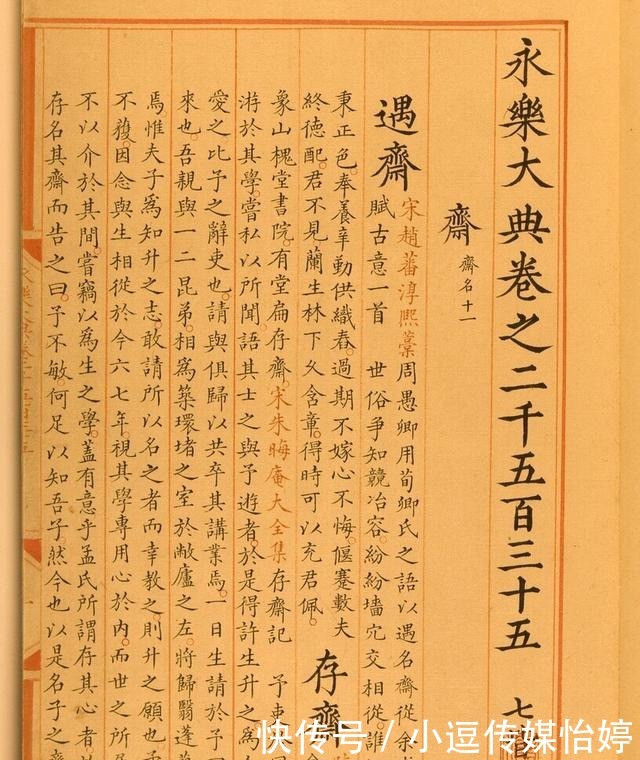 永樂大典卷之二千五百三十五 七
齋 齋名十一
遇齋
宋趙蕃淳熙藁周愚卿用荀卿氏之語以遇名齋從余
賦古意一首 世俗爭知競冶容。紛紛墻宂交相從。誰
秉正色。奉養辛勤供織舂。過期不嫁心不悔。偃蹇數夫
終德配。君不見蘭生林下久含章。得時可以充君佩。
存齋
象山槐堂書院。有堂扁存齋。宋朱晦庵大全集存齋記 予吏
游於其學。嘗私以所聞。語其士之與予遊者。於是得許生升之爲人
愛之。比予之辭吏也。請與俱歸以共卒其講業焉。一日生請於予
來也。吾親與一二昆弟。相爲築環堵之室於敝廬之左。將歸翳蓬
焉。惟夫子爲知升之志。敢請所以名之者而幸教之則升之願也
不獲。因念與生相從於今六七年。視其學專用心於內。而世之所
不以介於其間。嘗竊以爲生之學。蓋有意乎孟氏所謂存其心者
存名其齋而告之曰。子不敏。何足以知吾子。然今也以是名子之
快传号/小逗传媒怡婷